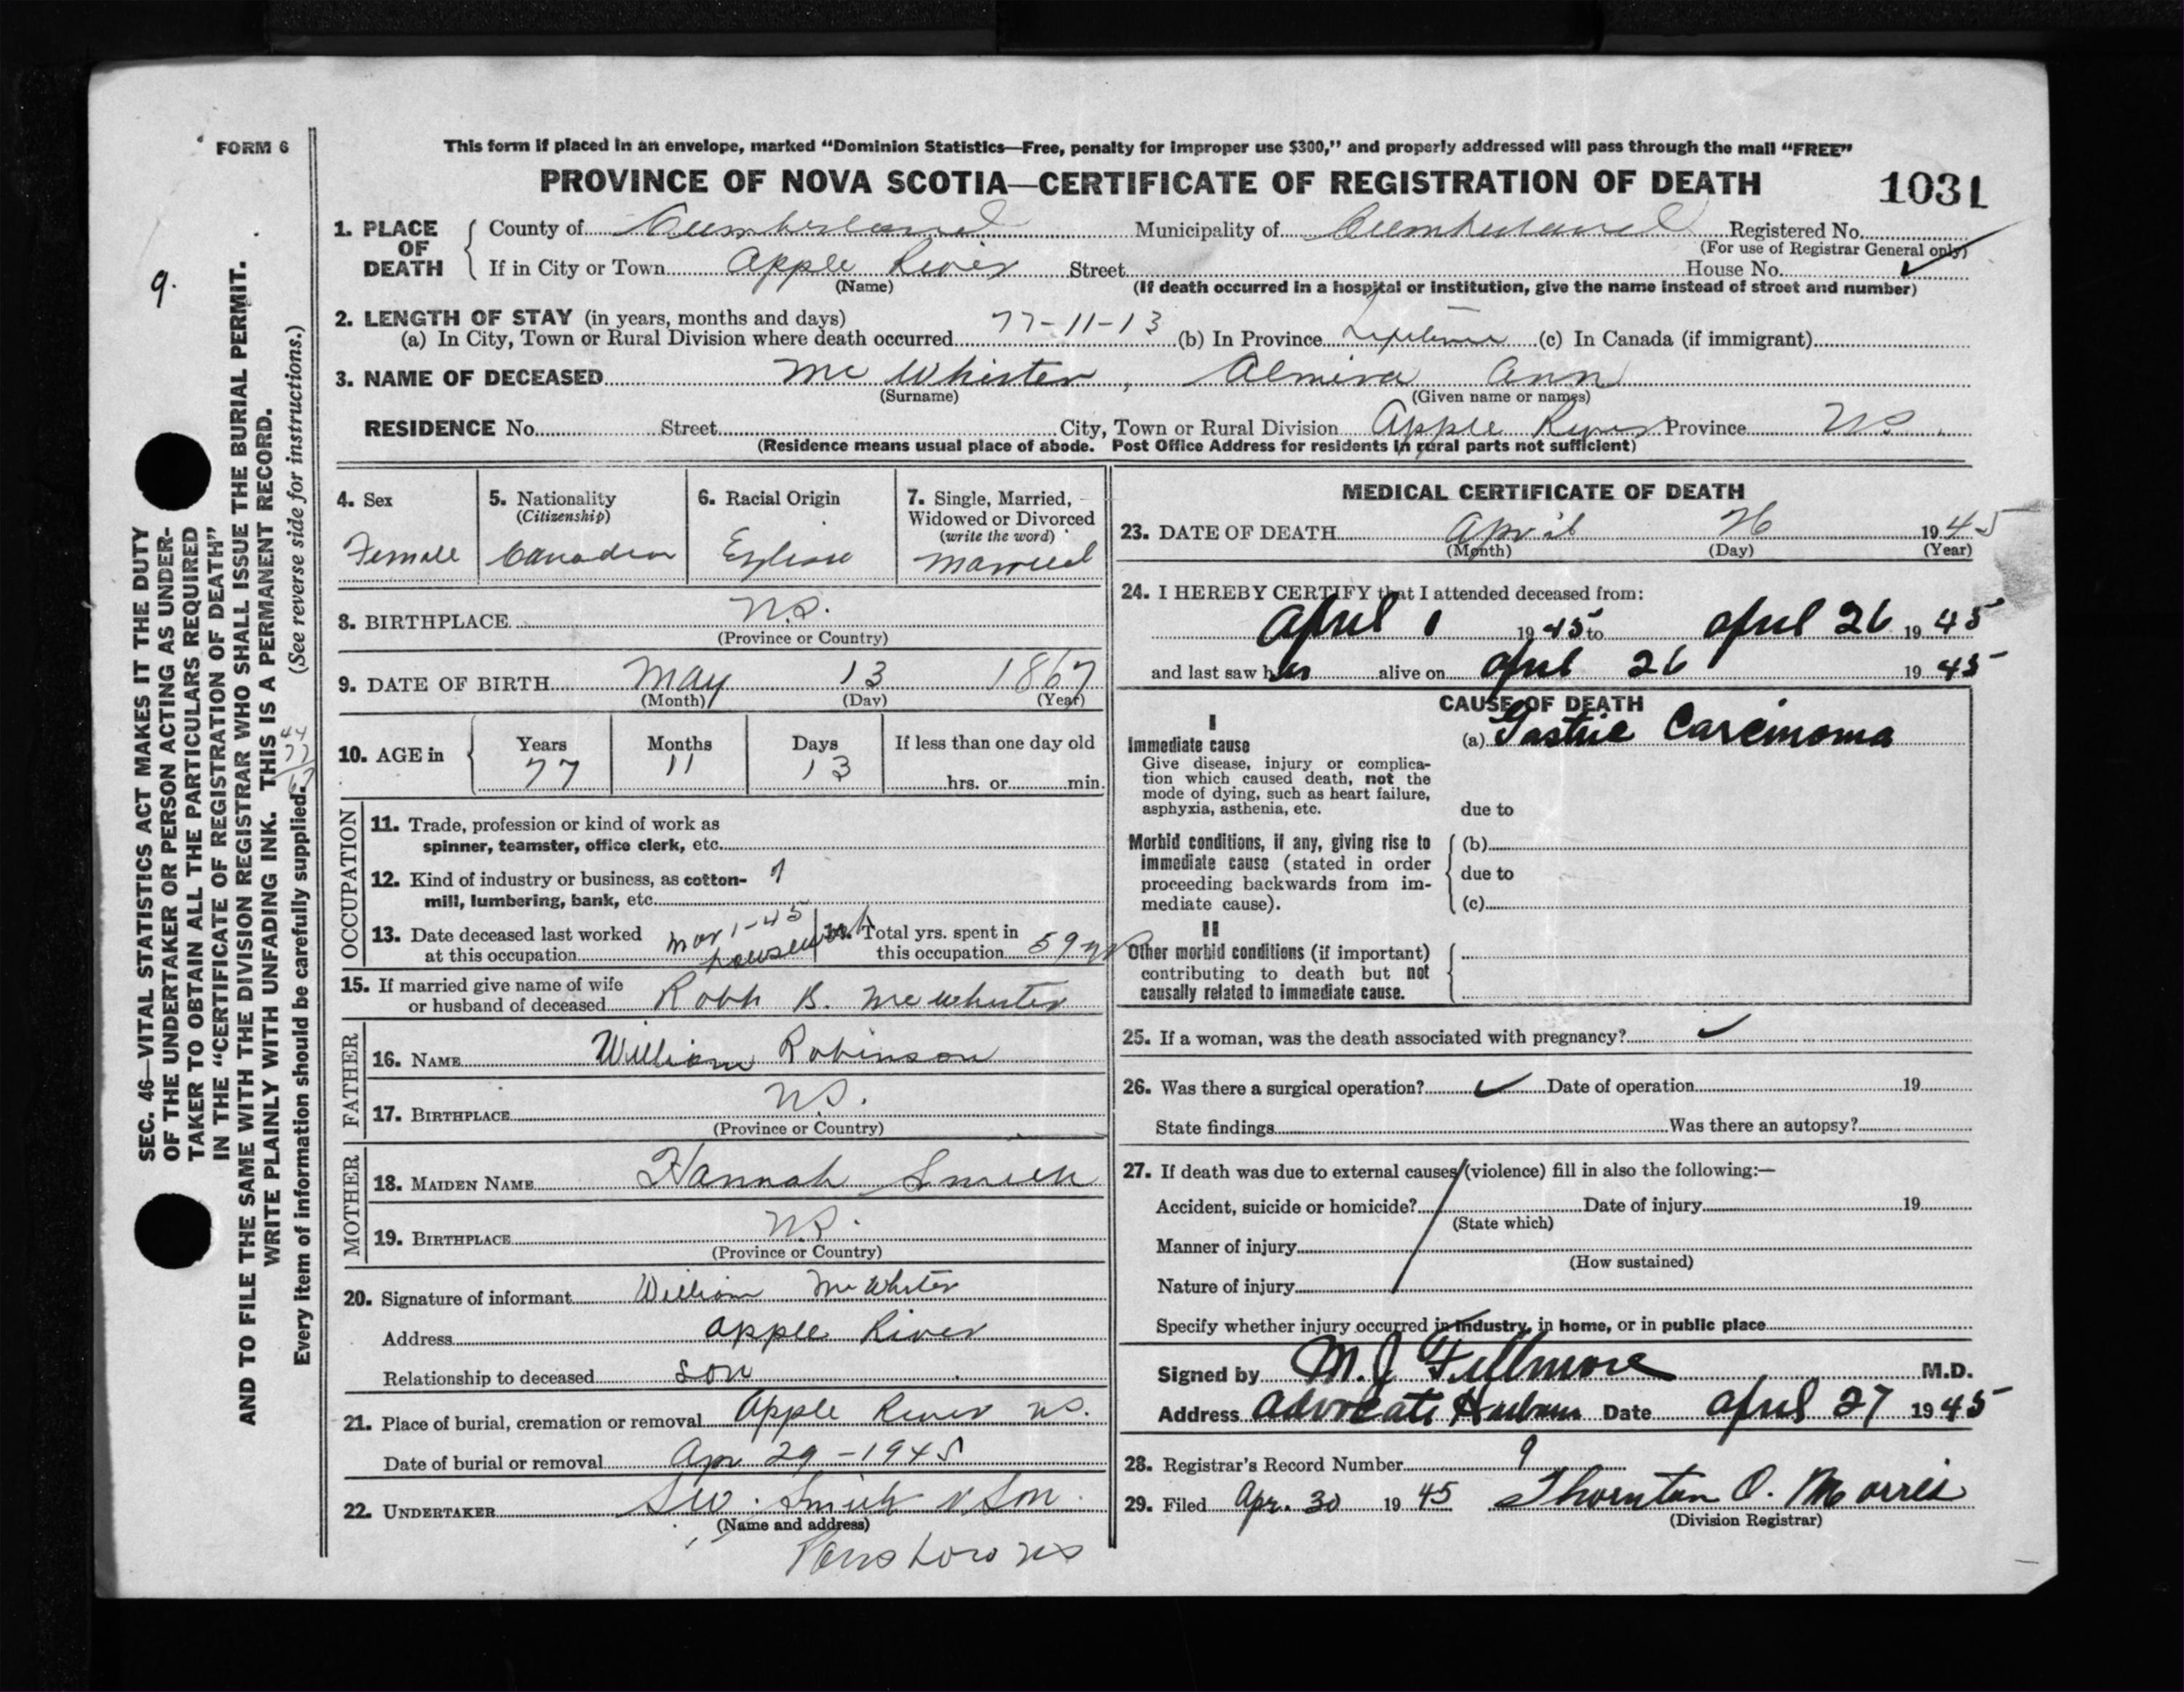 FORM 6
This form if placed in an envelope, marked “Dominion Statistics—Free, penalty for improper use $300,” and properly addressed will pass through the mail “FREE”
PROVINCE OF NOVA SCOTIA—CERTIFICATE OF REGISTRATION OF DEATH
1031
9.
SEC. 46—VITAL STATISTICS ACT MAKES IT THE DUTY
OF THE UNDERTAKER OR PERSON ACTING AS UNDER-
TAKER TO OBTAIN ALL THE PARTICULARS REQUIRED
IN THE “CERTIFICATE OF REGISTRATION OF DEATH”
AND TO FILE THE SAME WITH THE DIVISION REGISTRAR WHO SHALL ISSUE THE BURIAL PERMIT.
WRITE PLAINLY WITH UNFADING INK. THIS IS A PERMANENT RECORD.
Every item of information should be carefully supplied. (See reverse side for instructions.)
44
77
67
1. PLACE OF DEATH
County of Cumberland Municipality of Cumberland Registered No.
(For use of Registrar General only)
If in City or Town Apple River Street House No.
(Name) (If death occurred in a hospital or institution, give the name instead of street and number)
2. LENGTH OF STAY (in years, months and days)
(a) In City, Town or Rural Division where death occurred 77-11-13 (b) In Province Lifetime (c) In Canada (if immigrant)
3. NAME OF DECEASED McWhirter, Almira Ann
(Surname) (Given name or names)
RESIDENCE No. Street City, Town or Rural Division Apple River Province N.S.
(Residence means usual place of abode. Post Office Address for residents in rural parts not sufficient)
4. Sex
Female
5. Nationality
(Citizenship)
Canadian
6. Racial Origin
English
7. Single, Married,
Widowed or Divorced
(write the word)
Married
8. BIRTHPLACE N.S.
(Province or Country)
9. DATE OF BIRTH May 13 1867
(Month) (Day) (Year)
10. AGE in
Years Months Days If less than one day old
77 11 13 hrs. or min.
OCCUPATION
11. Trade, profession or kind of work as
spinner, teamster, office clerk, etc.
12. Kind of industry or business, as cotton-
mill, lumbering, bank, etc.
13. Date deceased last worked
at this occupation Mar 1-45 housework
14. Total yrs. spent in
this occupation 59 yr
15. If married give name of wife
or husband of deceased Robt B. McWhirter
FATHER
16. NAME William Robinson
17. BIRTHPLACE N.S.
(Province or Country)
MOTHER
18. MAIDEN NAME Hannah Smith
19. BIRTHPLACE N.S.
(Province or Country)
20. Signature of informant William McWhirter
Address Apple River
Relationship to deceased son
21. Place of burial, cremation or removal Apple River N.S.
Date of burial or removal Apr 29-1945
22. UNDERTAKER Smith & Son
(Name and address)
Parrsboro NS
MEDICAL CERTIFICATE OF DEATH
23. DATE OF DEATH April 26 1945
(Month) (Day) (Year)
24. I HEREBY CERTIFY that I attended deceased from:
April 1 1945 to April 26 1945
and last saw her alive on April 26 1945
CAUSE OF DEATH
I
Immediate cause
Give disease, injury or complica-
tion which caused death, not the
mode of dying, such as heart failure,
asphyxia, asthenia, etc.
(a) Gastric Carcinoma
due to
Morbid conditions, if any, giving rise to
immediate cause (stated in order
proceeding backwards from im-
mediate cause).
(b)
due to
(c)
II
Other morbid conditions (if important)
contributing to death but not
causally related to immediate cause.
25. If a woman, was the death associated with pregnancy?
26. Was there a surgical operation? Date of operation 19
State findings Was there an autopsy?
27. If death was due to external causes (violence) fill in also the following:—
Accident, suicide or homicide? Date of injury 19
(State which)
Manner of injury
(How sustained)
Nature of injury
Specify whether injury occurred in industry, in home, or in public place
Signed by M. J. Fillmore M.D.
Address Advocate Harbour Date April 27 1945
28. Registrar's Record Number 9
29. Filed Apr. 30 1945 Thornton O. Morris
(Division Registrar)